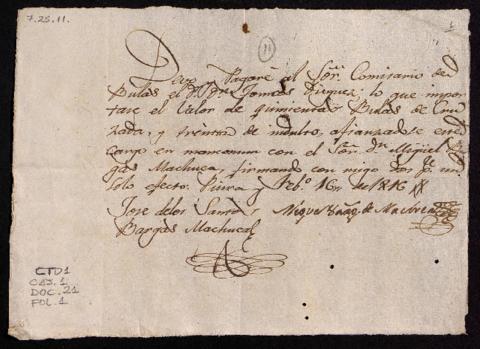 7.25.11.
11
1
Devo y Pagaré al Sōr. Comisario de
Bulas el Dr. Dn. Tomas Dieguez, lo que impor
tase el Valor de quinientas Bulas de Cru
zada, y treinta de indulto, afianzadose este
cargo en mancomun con el Sōr. Dn. Miguel Bar
gas Machuca, firmando con migo dos pa. un
solo efecto. Piura y Febo. 16,, de 1816
Jose delos Santos
Bargas Machuca
Miguel Bargs. Machuca
CTD1
CAJ.1
DOC.21
FOL.1